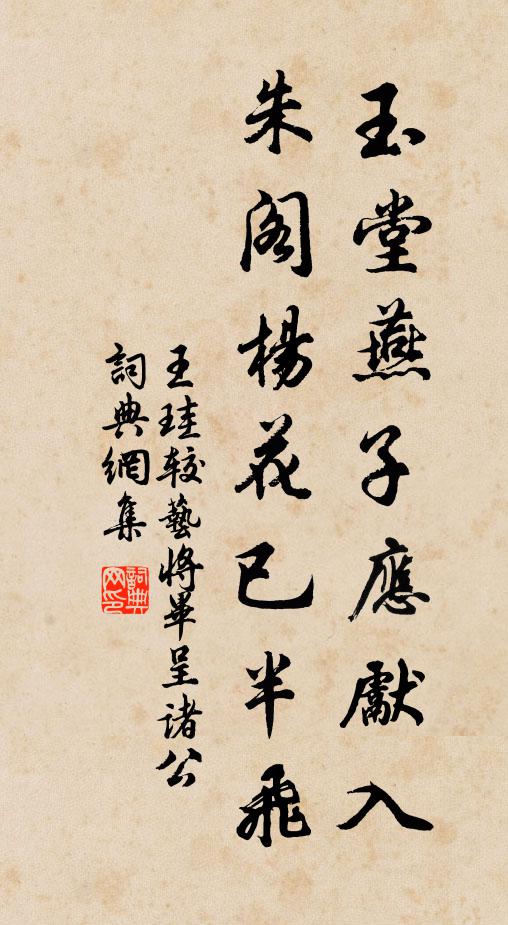 玉堂燕子應獻入
朱閣楊花已半飛
王珪較藝將畢呈諸公
詞典網集
詞典网印